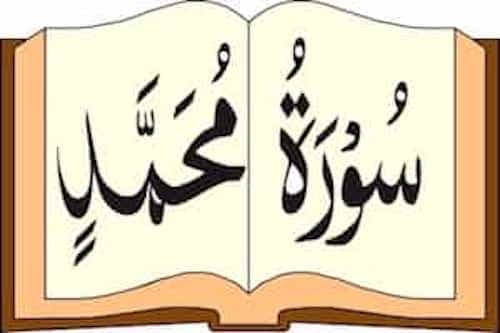 سُوْرَةُ مُحَمَّدٍ